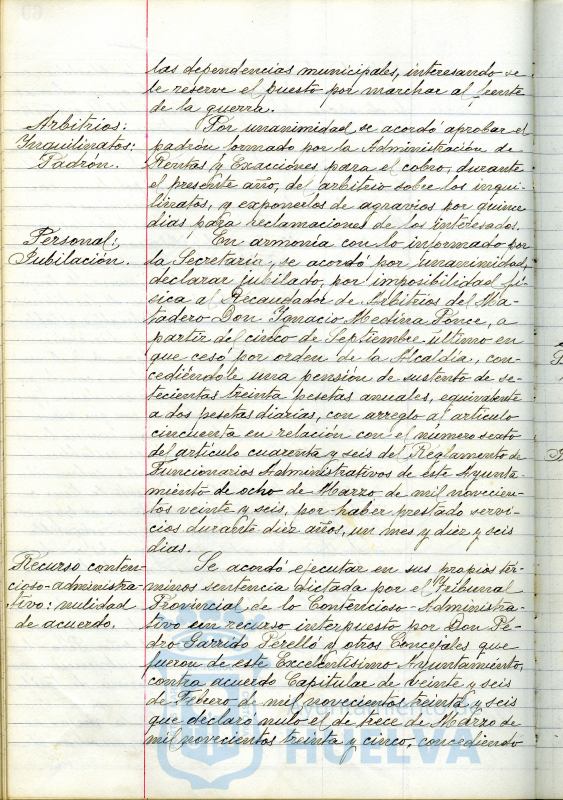 las dependencias municipales, interesando se
le reserve el puesto por marchar al frente
de la guerra.
Arbitrios:
Inquilinatos:
Padrón.
Por unanimidad se acordó aprobar el
padrón formado por la Administración de
Rentas y Exacciones para el cobro, durante
el presente año, del arbitrio sobre los inqui-
linatos, y exponerlos de agravios por quince
dias para reclamaciones de los interesados.
Personal:
Jubilación.
En armonia con lo informado por
la Secretaria, se acordó por unanimidad,
declarar jubilado, por imposibilidad fi-
sica al Recaudador de Arbitrios del Ma-
tadero Don Ignacio Medina Ponce, a
partir del cinco de Septiembre último en
que cesó por orden de la Alcaldía, con-
cediéndole una pensión de sustento de se-
tecientas treinta pesetas anuales, equivalente
a dos pesetas diarias, con arreglo al artículo
cincuenta en relación con el número sexto
del artículo cuarenta y seis del Reglamento de
Funcionarios Administrativos de este Ayunta-
miento de ocho de Marzo de mil novecien-
tos veinte y seis, por haber prestado servi-
cios durante diez años, un mes y diez y seis
dias.
Recurso conten-
cioso-administra-
tivo: nulidad
de acuerdo.
Se acordó ejecutar en sus propios tér-
minos sentencia dictada por el Tribunal
Provincial de lo Contencioso-Administra-
tivo en recurso interpuesto por Don Pe-
dro Garrido Perelló y otros Concejales que
fueron de este Excelentisimo Ayuntamiento,
contra acuerdo Capitular de veinte y seis
de Febrero de mil novecientos treinta y seis
que declaró nulo el de trece de Marzo de
mil novecientos treinta y cinco, concediendo
HUELVA